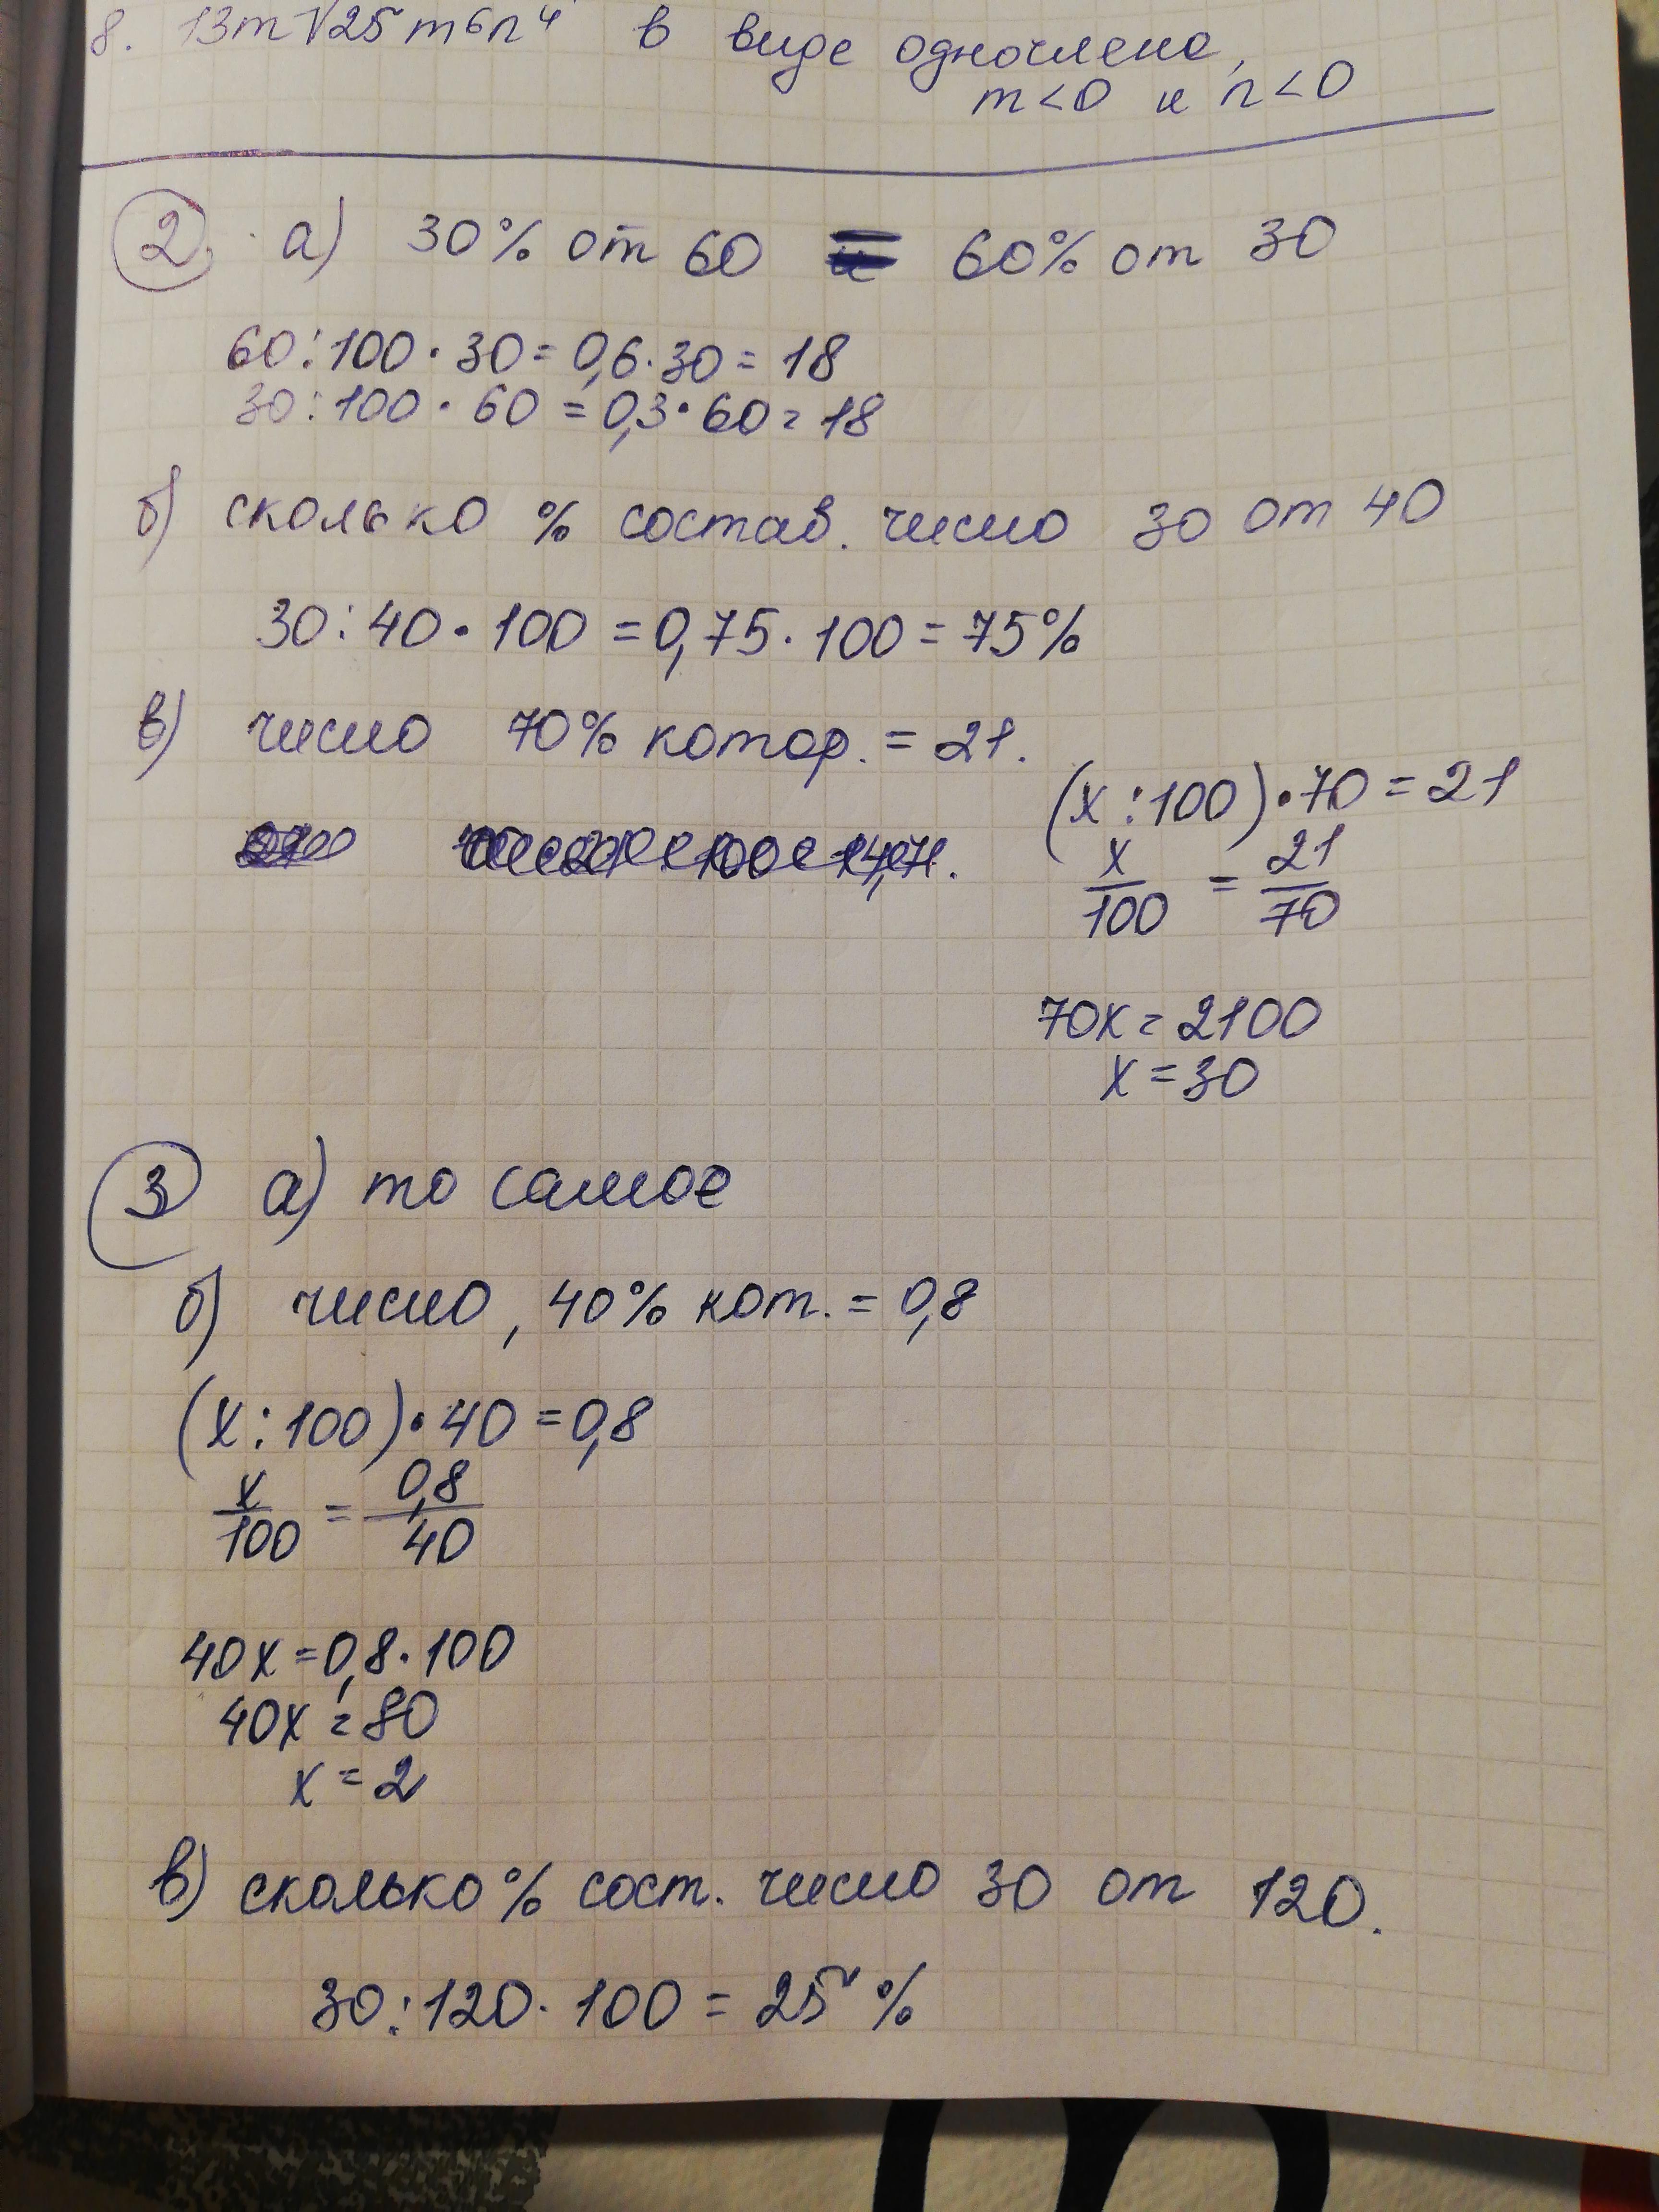 8. 13m√25m⁶n⁴ в виде одночлена,
m<0 и n<0
2. а) 30% от 60 = 60% от 30
60:100·30=0,6·30=18
30:100·60=0,3·60=18
б) сколько % состав. число 30 от 40
30:40·100=0,75·100=75%
в) число 70% котор.=21.
(x:100)·70=21
x/100 = 21/70
70x=2100
x=30
3 а) то самое
б) число, 40% кот.=0,8
(x:100)·40=0,8
x/100 = 0,8/40
40x=0,8·100
40x=80
x=2
в) сколько % сост. число 30 от 120.
30:120·100=25%